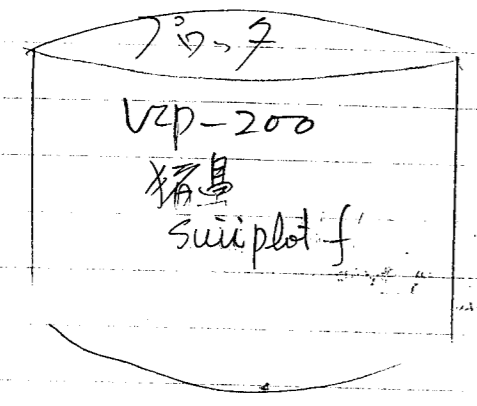 プロッタ
VZP-200
猪鼻
suiiplot f